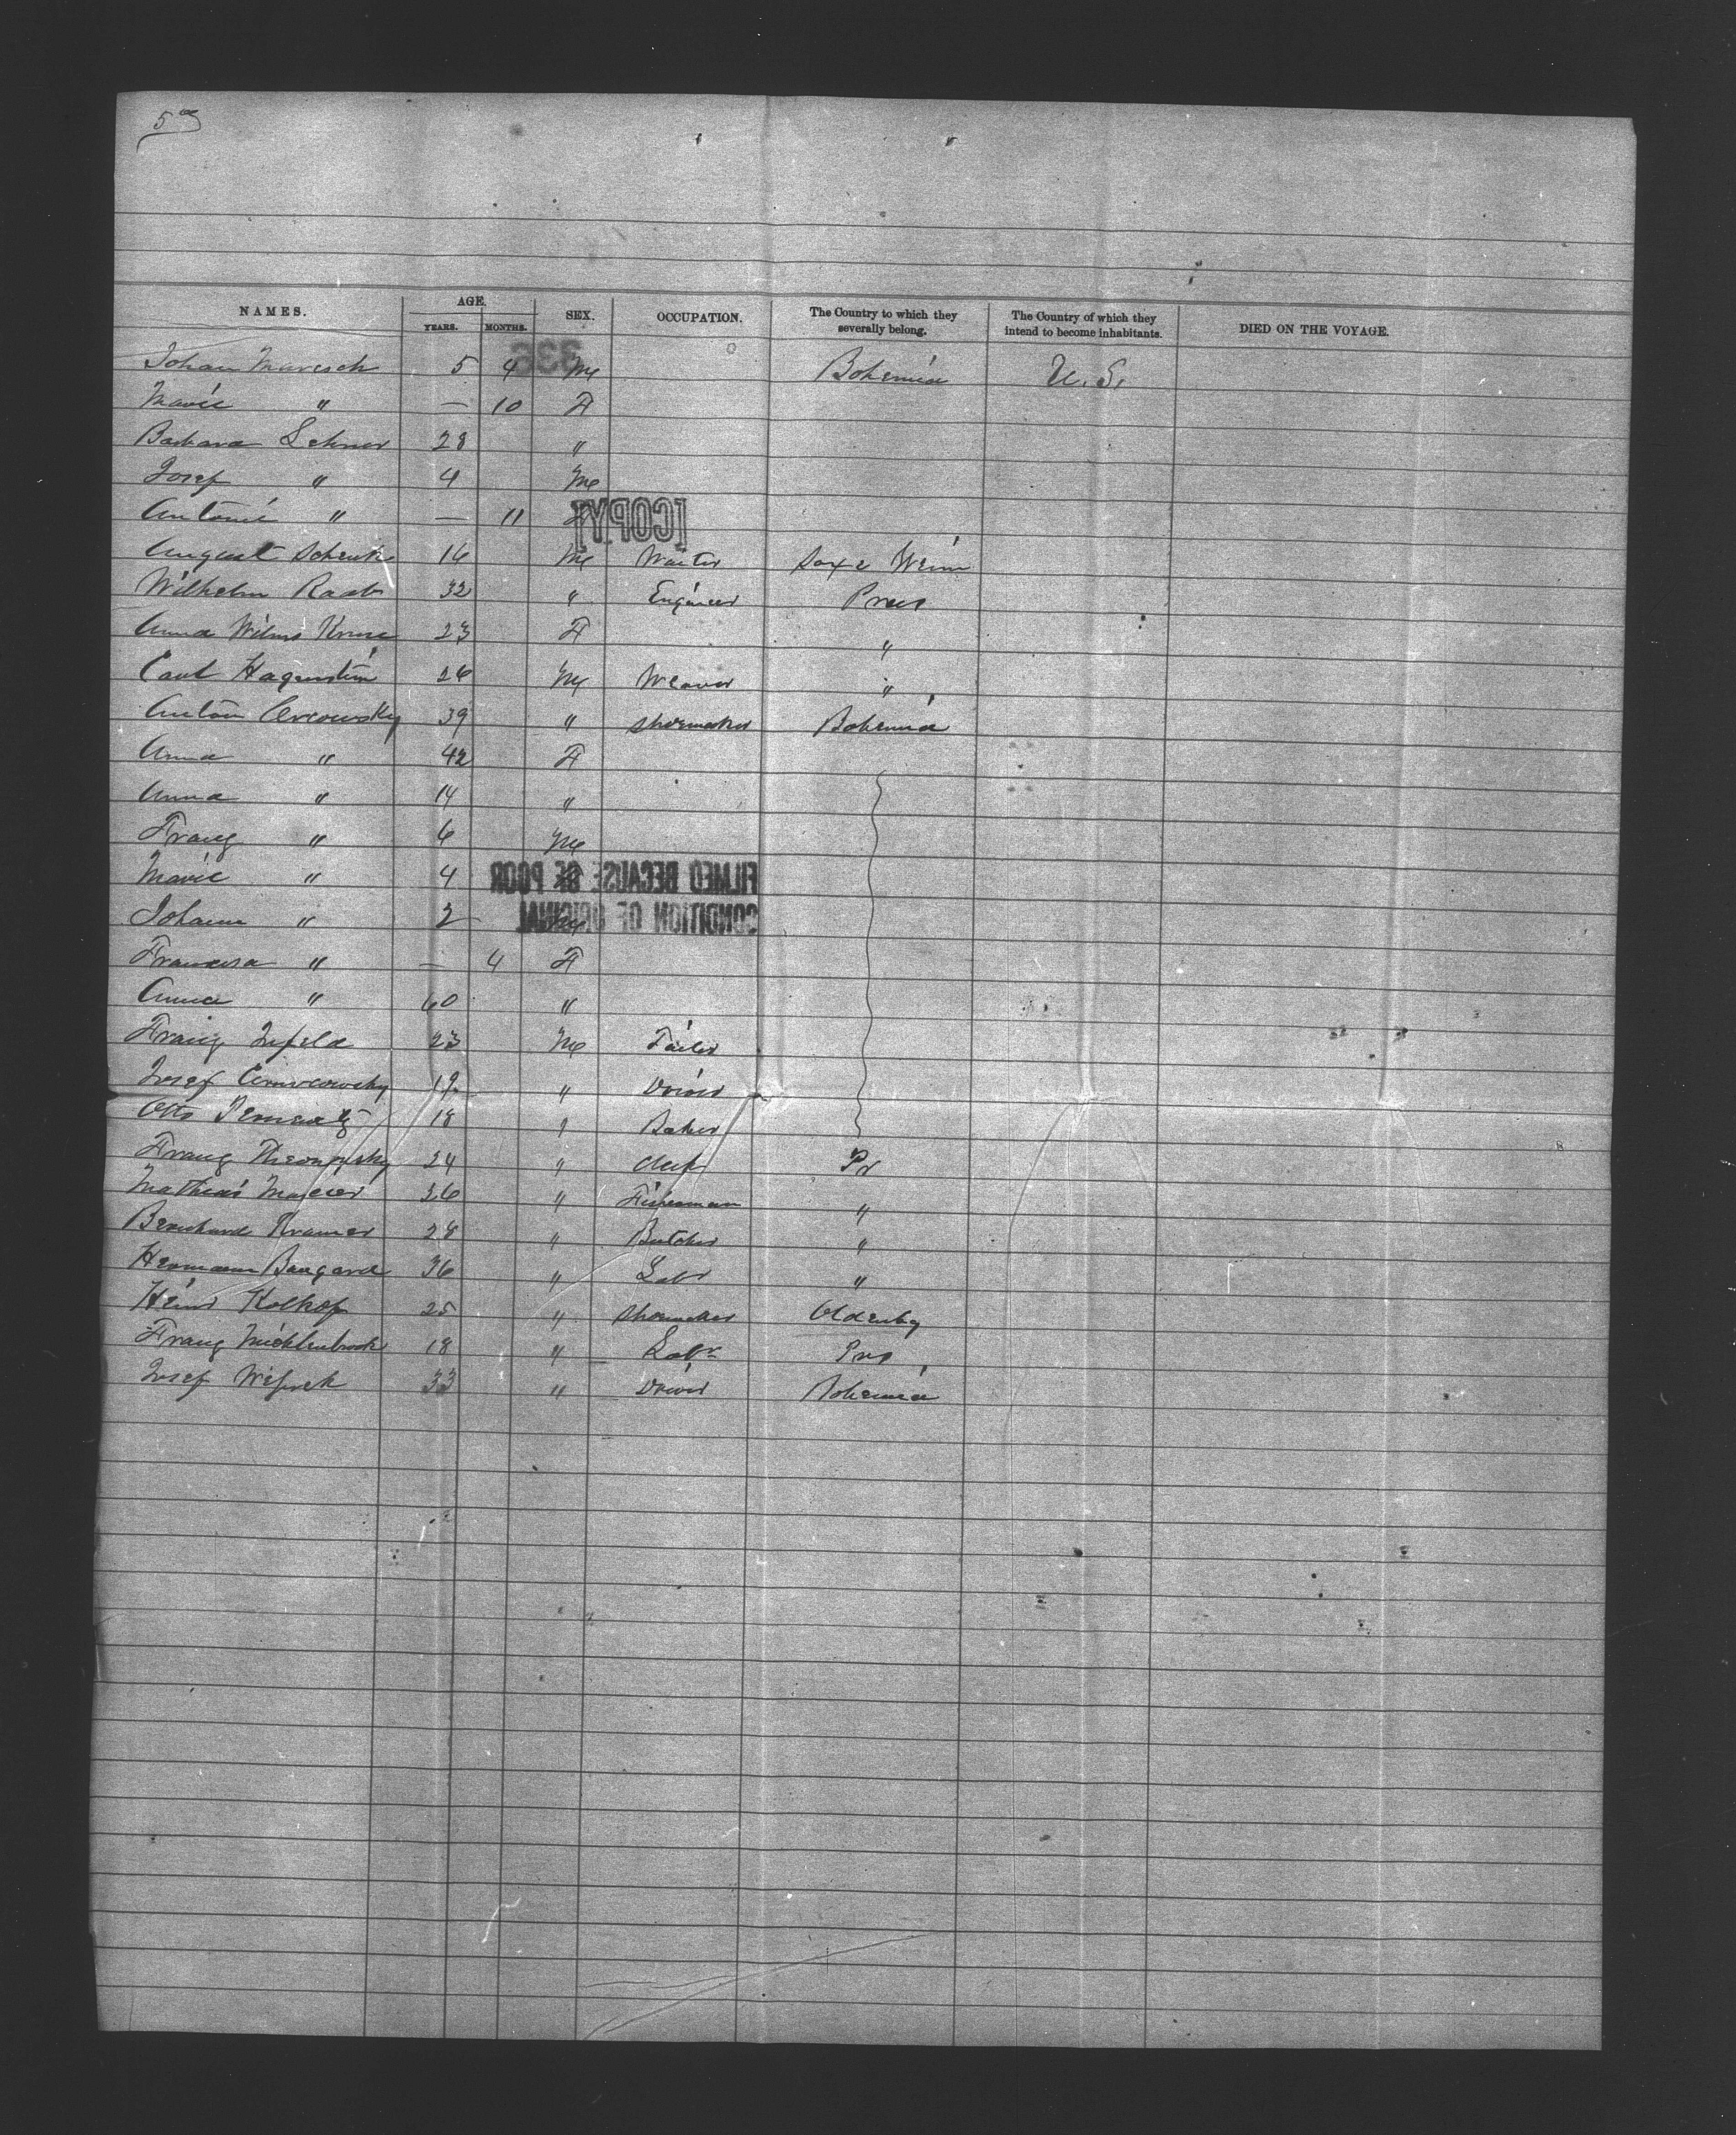 5
NAMES. AGE. SEX. OCCUPATION. The Country to which they severally belong. The Country of which they intend to become inhabitants. DIED ON THE VOYAGE.
YEARS. MONTHS.
336
Johan Maresch 5 4 M Bohemia U. S.
Marie " — 10 F
Barbara Lehner 28 "
Josef " 4 M
Antonie " — 11 F
[COPY]
August Schenk 16 M Waiter Saxe Weim
Wilhelm Raab 32 " Engineer Preus
Anna Wilms Kruse 23 F "
Carl Hagenstein 26 M Weaver "
Anton 39 " Shoemaker Bohemia
Anna " 42 F
Anna " 14 "
Franz " 6 M
Marie " 4 F
FILMED BECAUSE OF POOR
CONDITION OF ORIGINAL
Johann " 2 M
Francisca " — 4 F
Anna " 60 "
Franz 23 M Tailor
Josef 19 " Driver
Otto 18 " Baker
Franz 24 " Clerk Pr
Mathias 36 " Fisherman "
Bernhard Kramer 28 " Butcher "
Hermann Baugard 36 " Labr "
Heinr Kolhof 25 " Shoemaker Oldenbg
Franz Micklenbrock 18 " Labr Prs
Josef 33 " Driver Bohemia